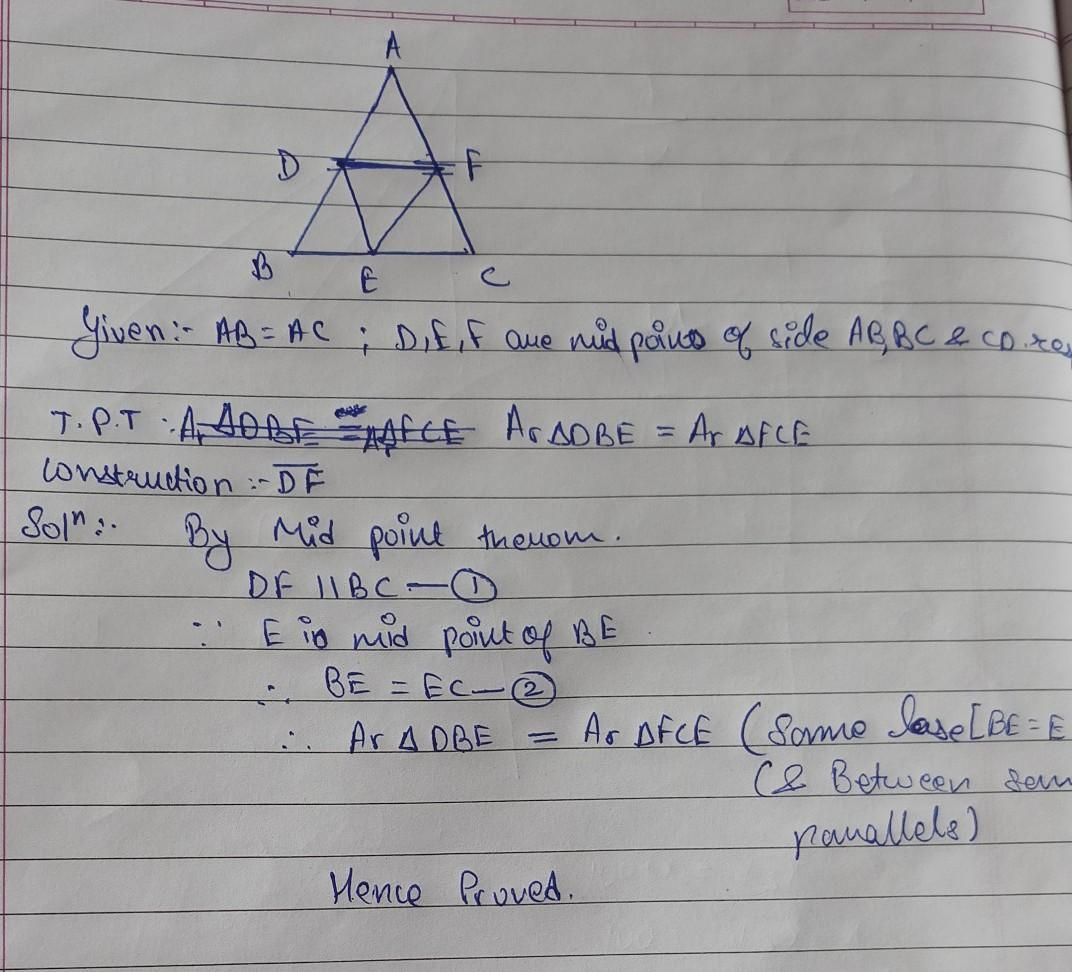 A
D F
B E C
Given:- AB = AC ; D, E, F are mid points of side AB, BC & CD. res
T.P.T :- Ar ΔDBE = Ar ΔFCE Ar ΔDBE = Ar ΔFCE
Construction :- DF
Solⁿ :- By Mid point theuom.
DF || BC — ①
∵ E is mid point of BE
∴ BE = EC — ②
∴ Ar Δ DBE = Ar ΔFCE (Same base [BE = E
(& Between sem
parallels)
Hence Proved.